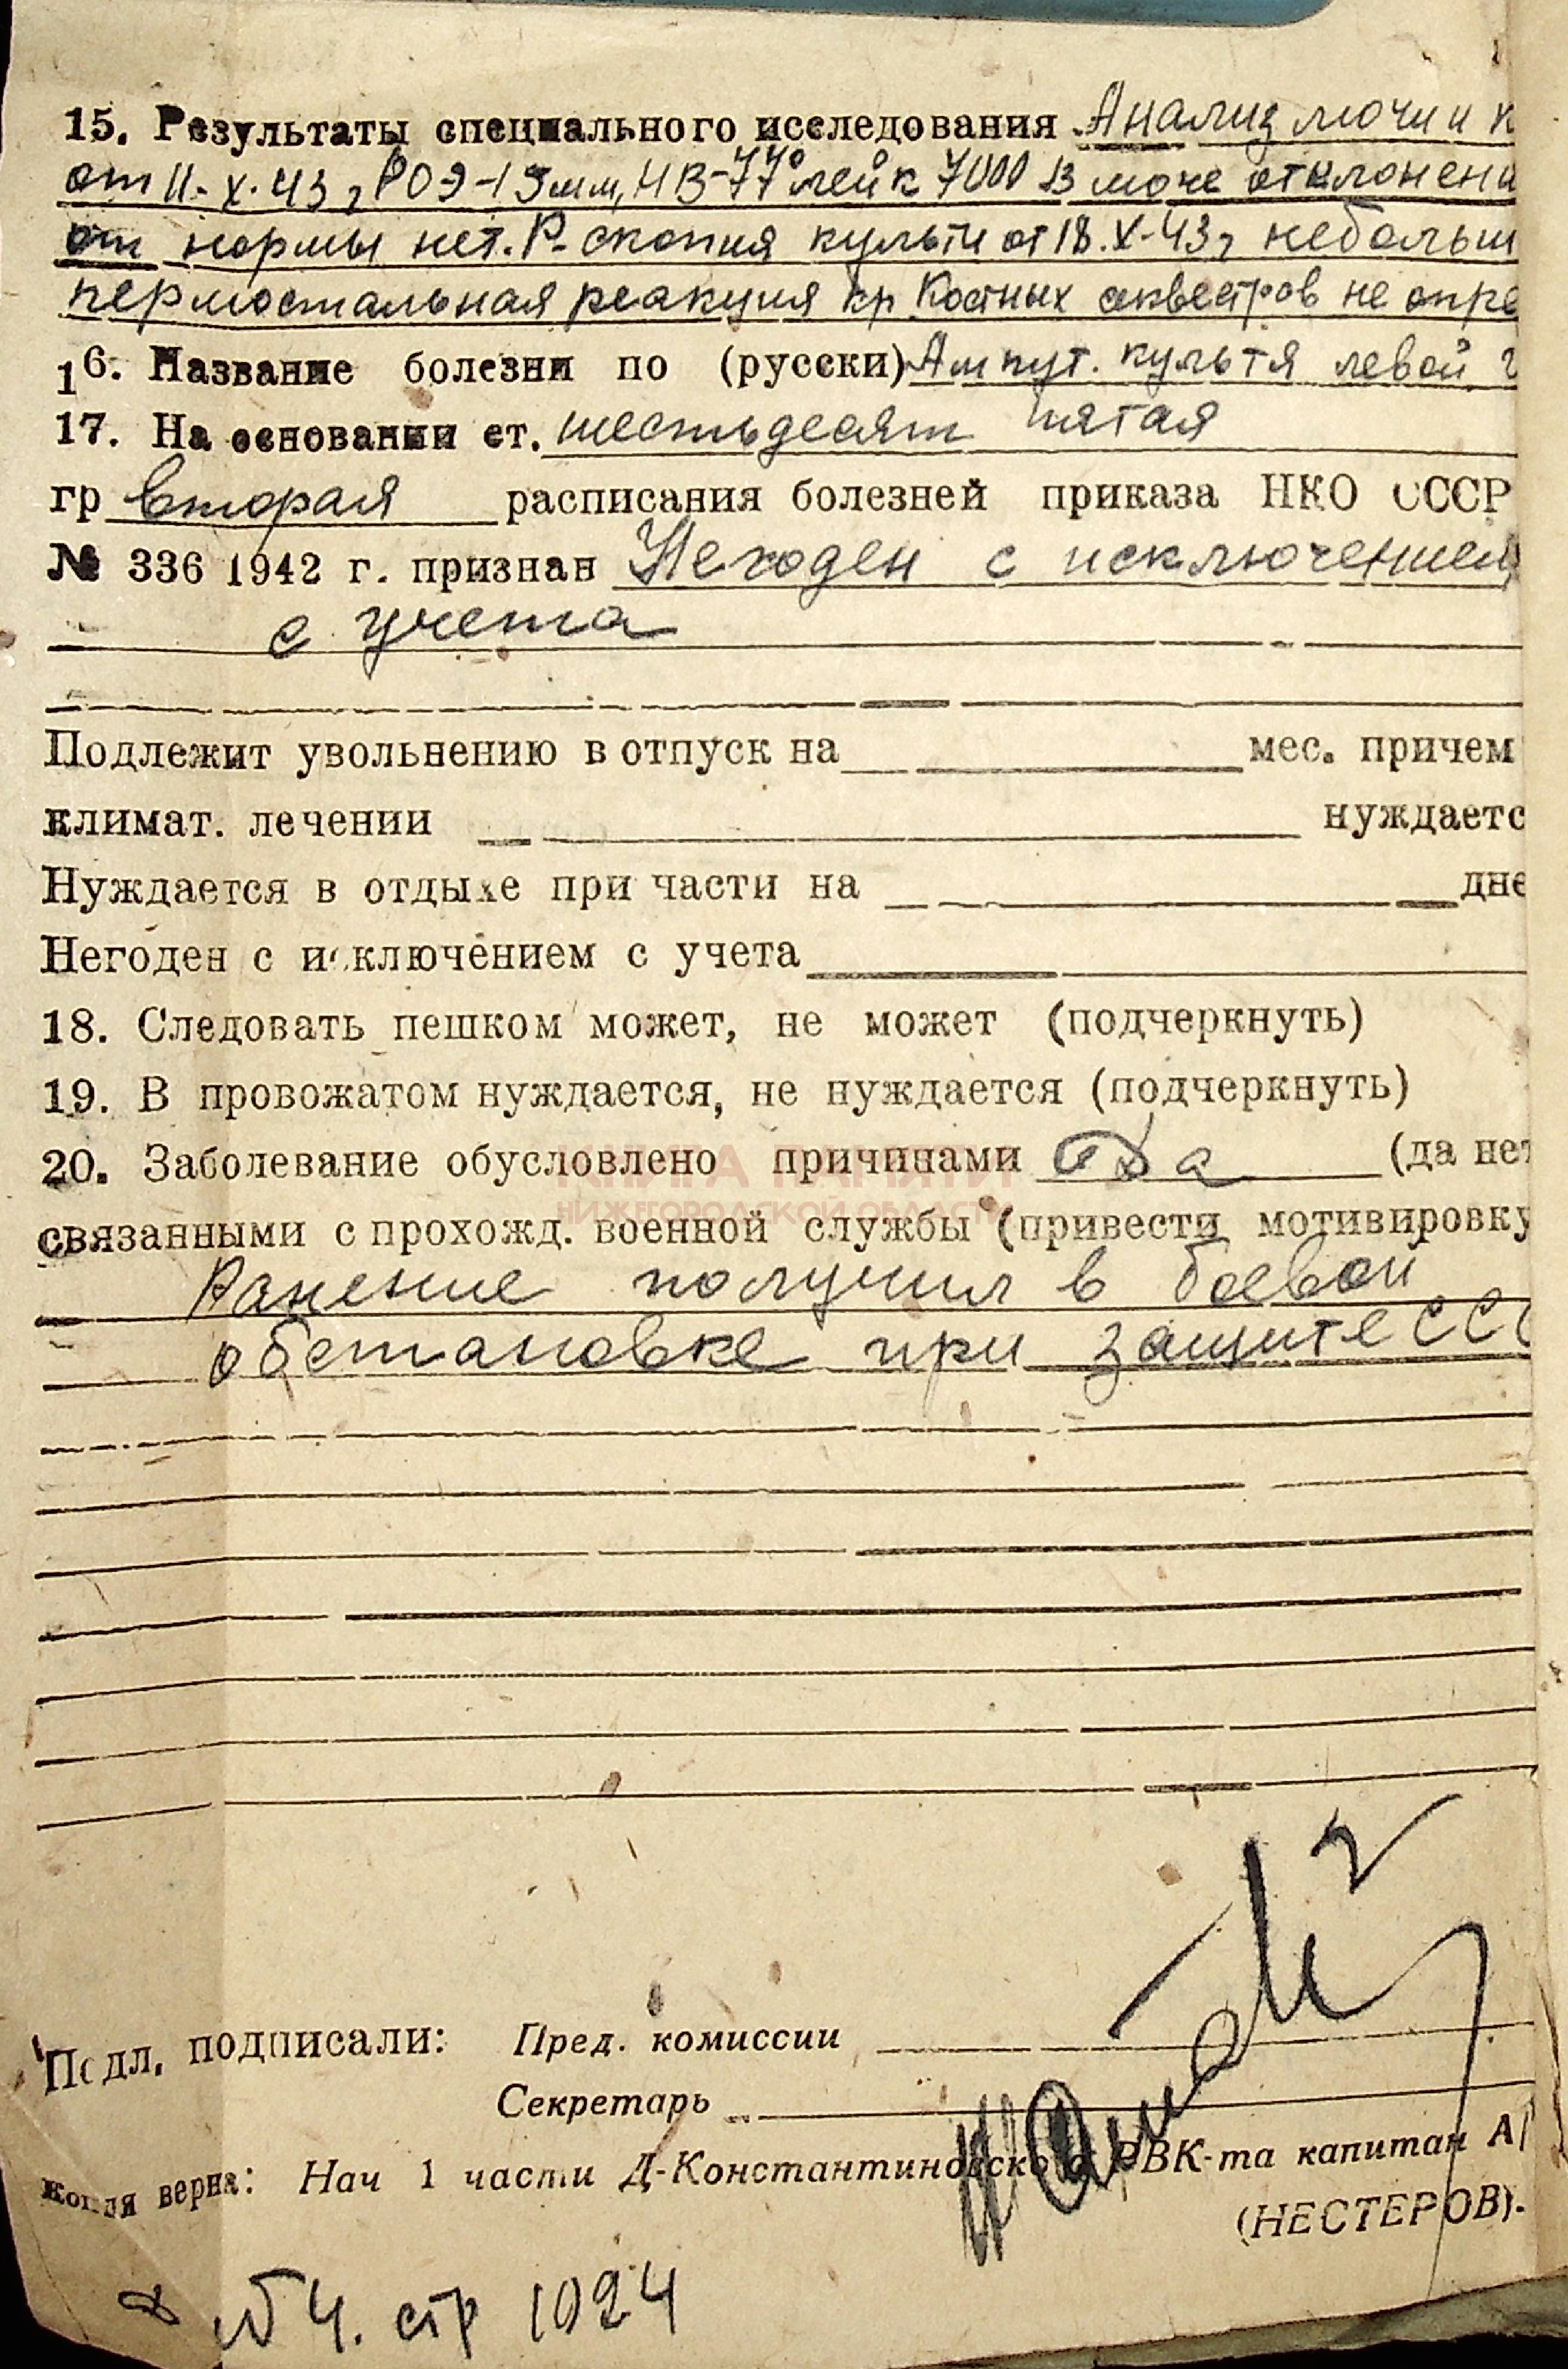 15. Результаты специального исследования Анализ мочи и к
от 11-X-43 г РОЭ-15мм, НВ-77% лейк 7000 В моче отклонени
от нормы нет. Р-скопия культи от 18.X-43г небольш
периостальная реакция кр Костных секвестров не опре
16. Название болезни по (русски) Ампут. культя левой г
17. На основании ст. шестьдесят пятая
гр вторая расписания болезней приказа НКО СССР
№ 336 1942 г. признан Негоден с исключением
с учета
Подлежит увольнению в отпуск на мес. причем
климат. лечении нуждаетс
Нуждается в отдыхе при части на дне
Негоден с исключением с учета
18. Следовать пешком может, не может (подчеркнуть)
19. В провожатом нуждается, не нуждается (подчеркнуть)
20. Заболевание обусловлено причинами Да (да нет
КНИГА ПАМЯТИ
НИЖЕГОРОДСКОЙ ОБЛАСТИ
связанными с прохожд. военной службы (привести мотивировку
Ранение получил в боевой
обстановке при защите ССС
Подл. подписали: Пред. комиссии
Секретарь
копия верна: Нач 1 части Д-Константиновского РВК-та капитан А/
(НЕСТЕРОВ).
№ 4. стр 1024